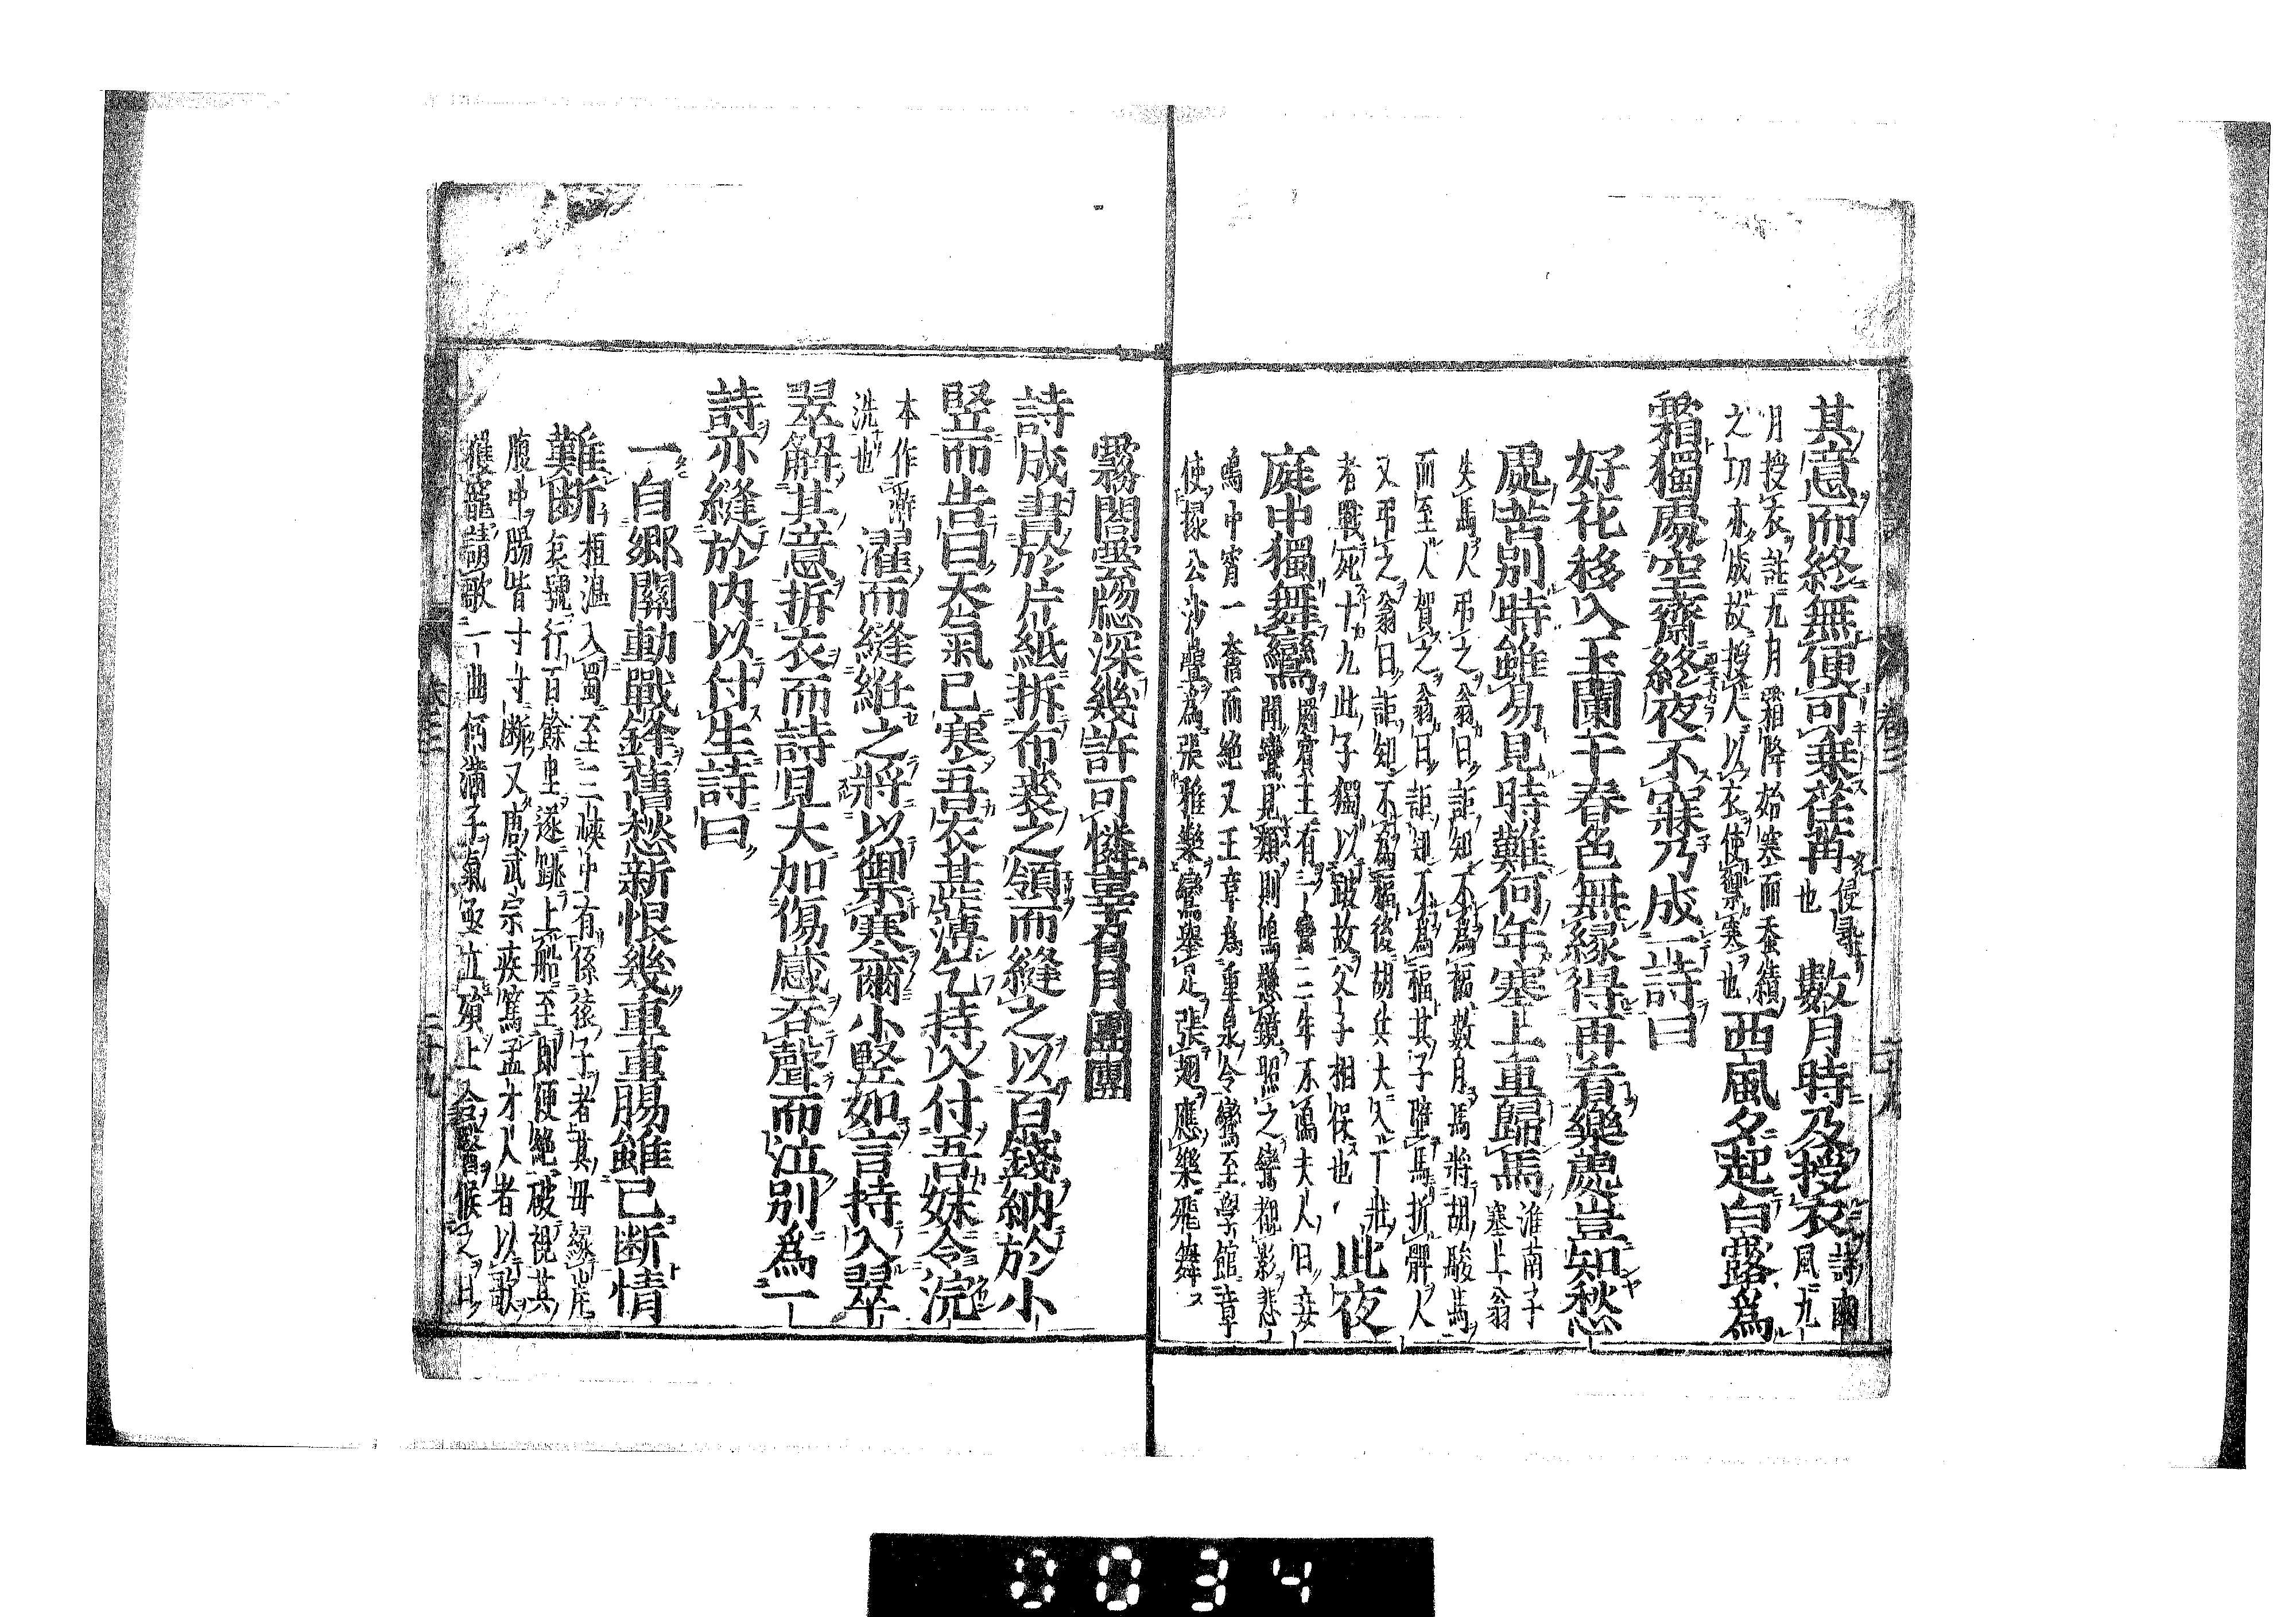 其意而終無便可乗荏苒侵尋也數月時及授衣詩豳風九
月授衣註九月霜降始寒而蚕績
之功亦成故授人以衣使禦寒也西風夕起白露為
霜獨處空齋終夜不寐乃成一詩曰
好花移入玉闌干春色無縁得再看樂處豈知愁
處苦別時雖易見時難何年塞上重歸馬淮南子塞上翁
失馬人弔之翁曰詎知不為福數月馬將胡駿馬
而至人賀之翁曰詎知不為福其子墮馬折髀人
又弔之翁曰詎知不為福後胡兵大入丁壯
者戰死十九此子獨以跛故父子相保也此夜
庭中獨舞鸞罽賓王有一鸞三年不鳴夫人曰妾
聞鸞見類則鳴懸鏡照之鸞覩影悲
鳴中宵一奮而絶又王章為重泉令鸞至學館章
使掾公沙疊為張雅樂鸞舉足張翅應樂飛舞
霧閣雲窓深幾許可憐辜負月團團
詩成書於片紙拆布裘之領而縫之以百錢納於小
竪而告曰天氣已寒吾衣甚薄乞持入付吾妹令浣
本作澣洗也濯而縫絍之將以禦寒爾小竪如言持入翠
翠解其意拆衣而詩見大加傷感吞聲而泣別為一
詩亦縫於内以付生詩曰
一自郷關動戰鋒舊愁新恨幾重重腸雖已断情
難断桓温入蜀至三峽中有係猿子者其母縁岸
哀號行百餘里遂跳上船至即便絶破視其
腹中腸皆寸寸断又唐武宗疾篤孟才人者以歌
請歌一曲何満子氣亟立殞上令醫候之曰
卷三
二十八
卷三
二十九
0034